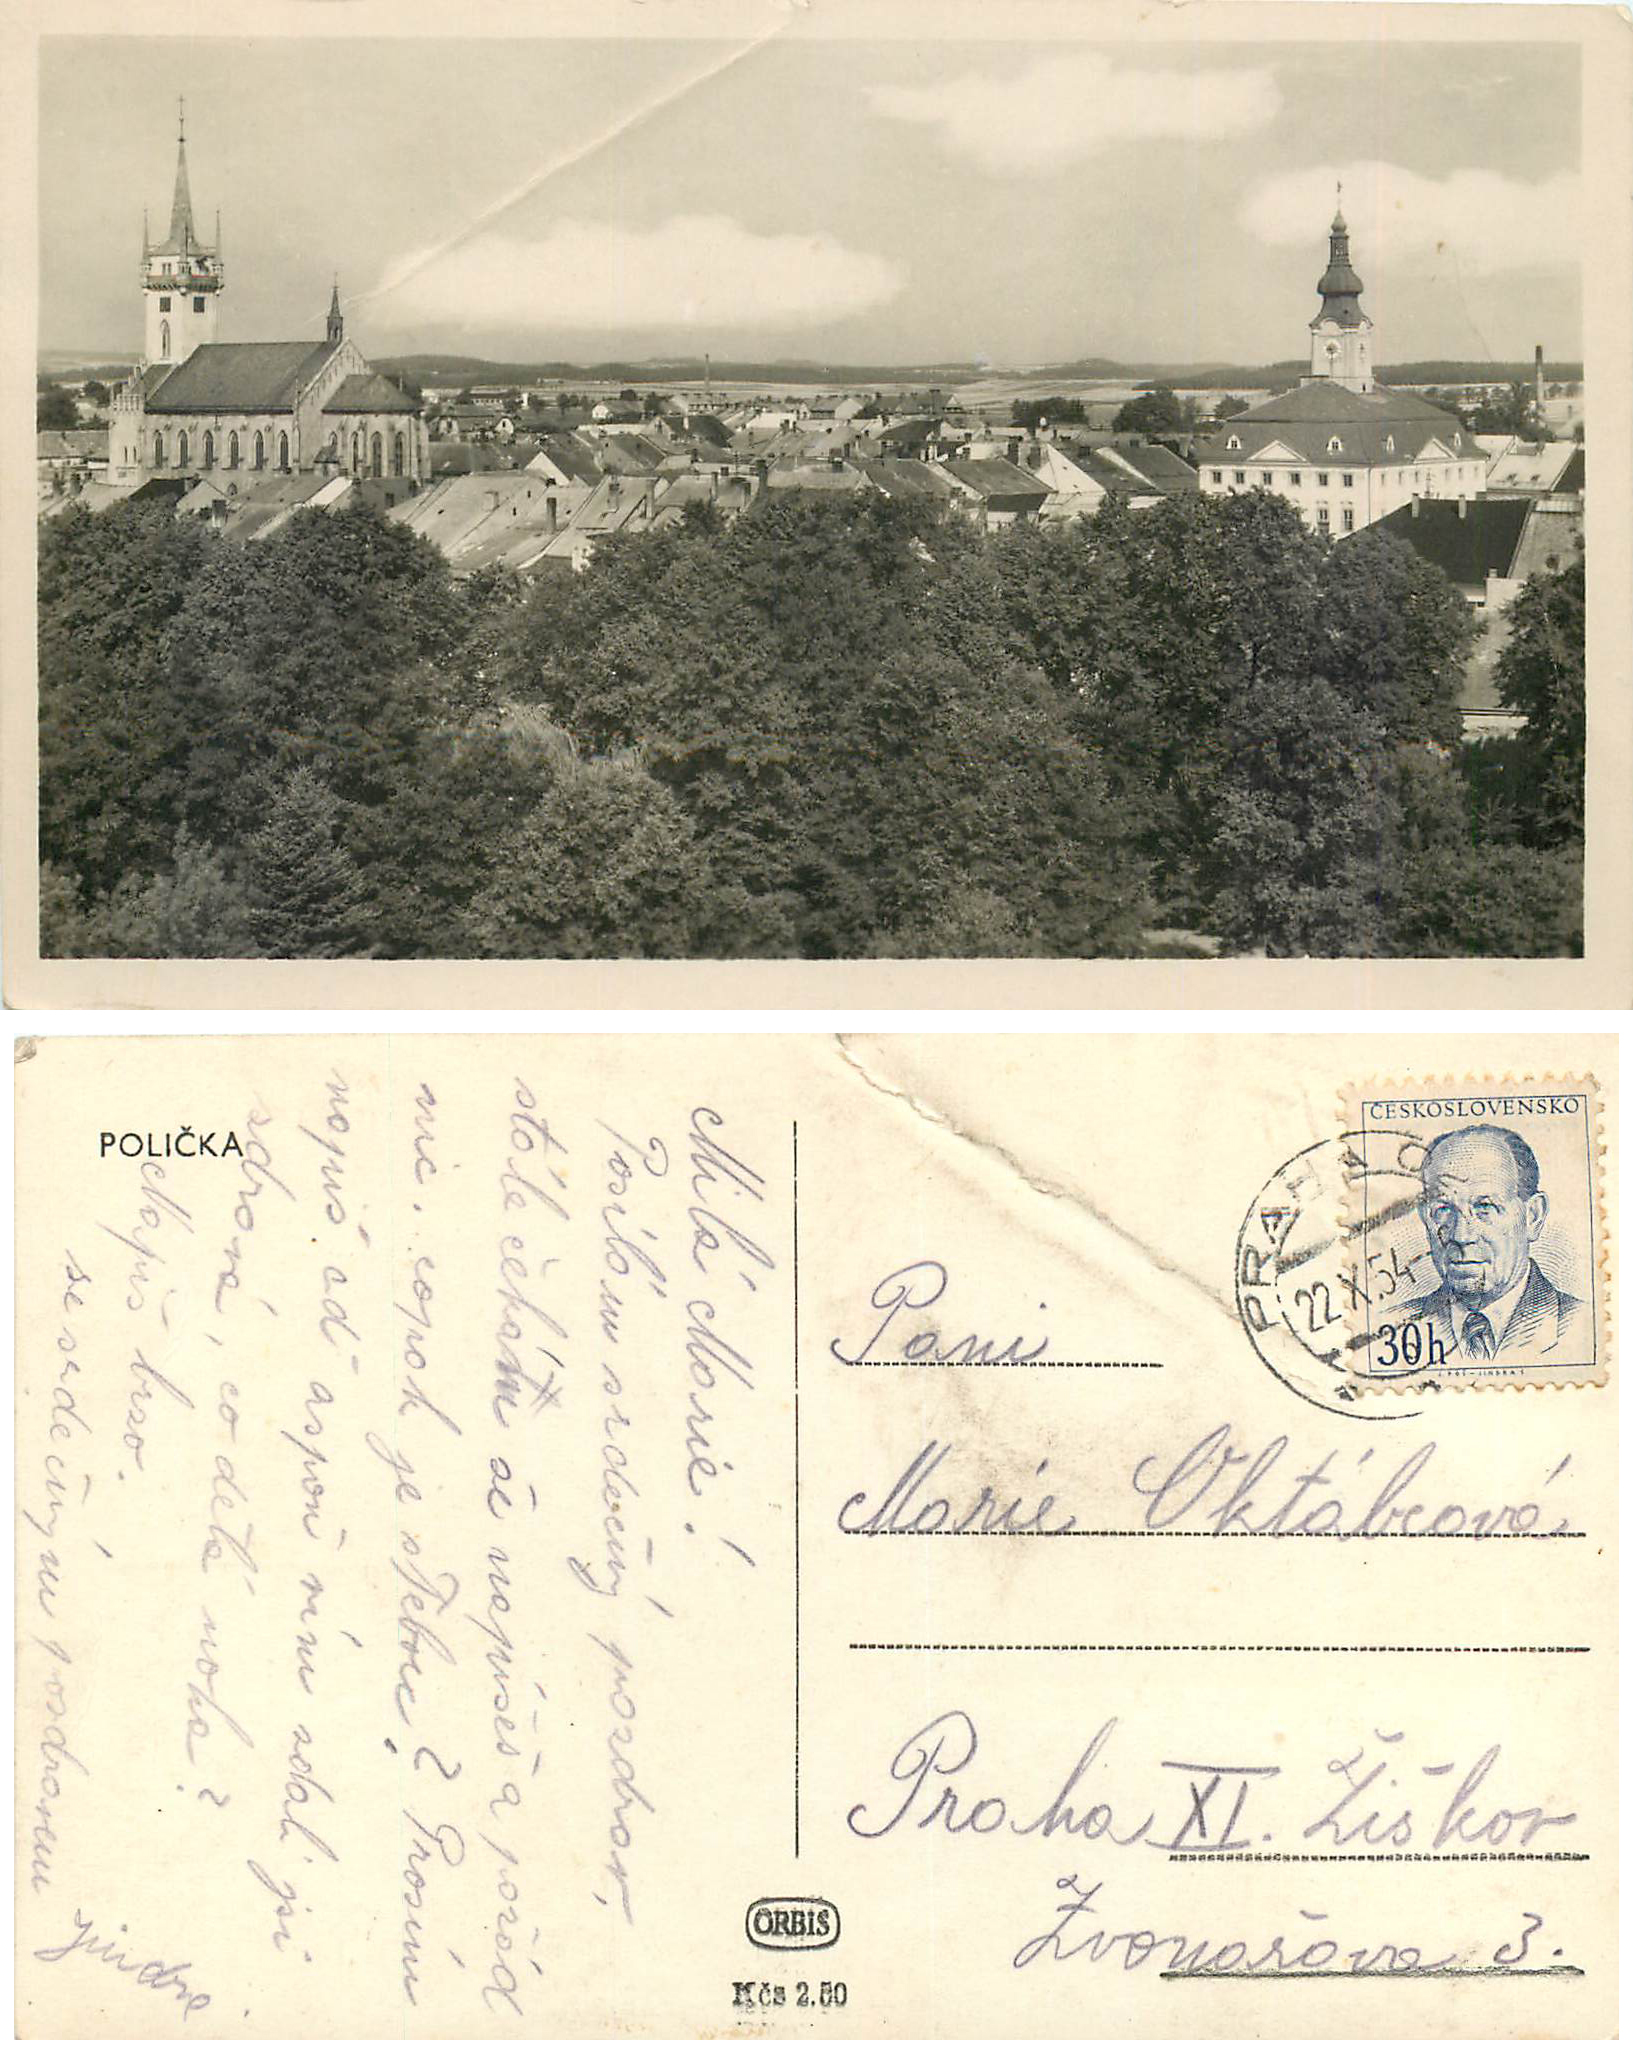 POLIČKA
Milá Marie!
Posílám srdečný pozdrav,
stále čekám že napíšeš a pořád
nic. copak je s Tebou? Prosím
napiš ať aspoň vím zdali jsi
zdravá, co dělá noha?
Napiš brzo.
se srdečným pozdravem
Jindra
ČESKOSLOVENSKO
30h
PRAHA
22.X.54
Paní
Marie Oktábcová
Praha XI. Žižkov
Zvonařova 3.
ORBIS
Kčs 2.50